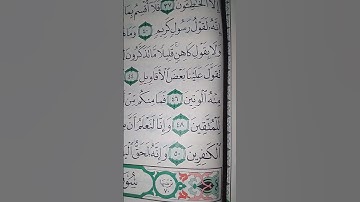 إِلَّا ٱلْخَٰطِـُٔونَ ٣٧ فَلَآ أُقْسِمُ بِمَا
إِنَّهُۥ لَقَوْلُ رَسُولٍ كَرِيمٍ ٤٠ وَمَا
وَلَا بِقَوْلِ كَاهِنٍ قَلِيلًا مَّا تَذَكَّرُونَ
تَقَوَّلَ عَلَيْنَا بَعْضَ ٱلْأَقَاوِيلِ ٤٤
مِنْهُ ٱلْوَتِينَ ٤٦ فَمَا مِنكُم مِّنْ
لِّلْمُتَّقِينَ ٤٨ وَإِنَّا لَنَعْلَمُ أَنَّ
ٱلْكَٰفِرِينَ ٥٠ وَإِنَّهُۥ لَحَقُّ